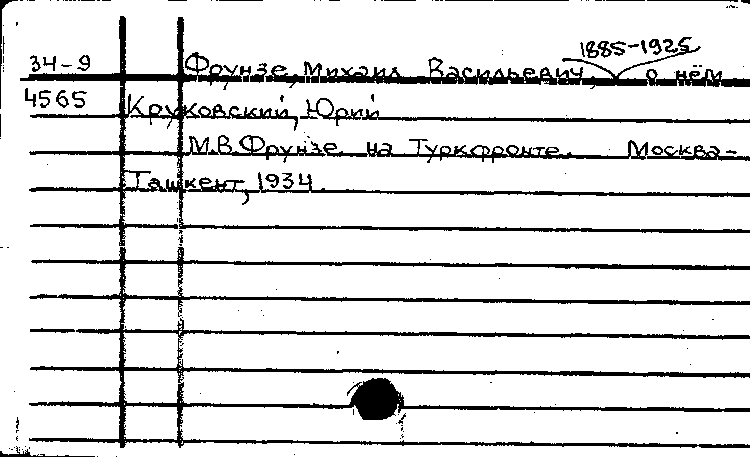 1885-1925
34-9 Фрунзе, Михаил Васильевич, о нём
4565 Круковский, Юрий
М.В.Фрунзе на Туркфронте. Москва-
Ташкент, 1934.